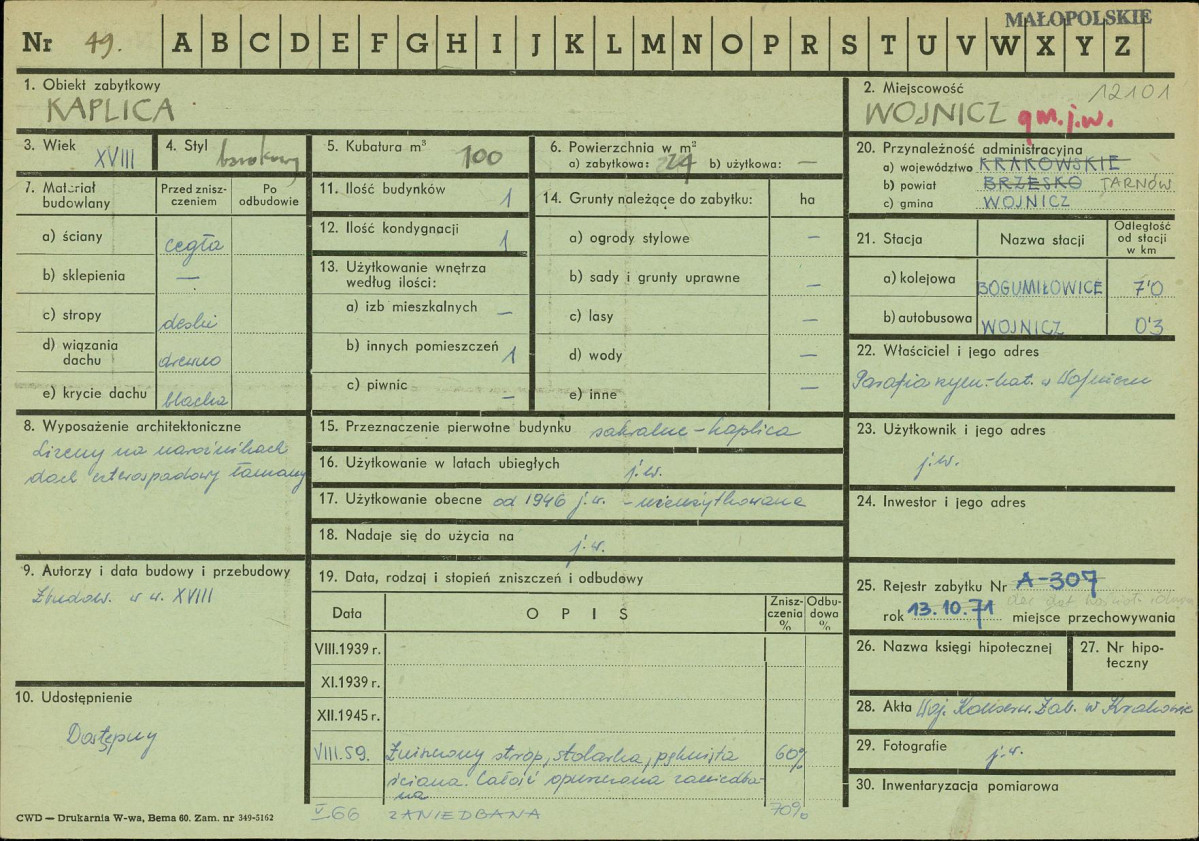 MAŁOPOLSKIE
Nr 49. A B C D E F G H I J K L M N O P R S T U V W X Y Z
1. Obiekt zabytkowy
KAPLICA
2. Miejscowość 12101
WOJNICZ gm. j.w.
3. Wiek XVIII
4. Styl barokowy
5. Kubatura m³ 100
6. Powierzchnia w m²
a) zabytkowa: 24 b) użytkowa: —
20. Przynależność administracyjna
a) województwo KRAKOWSKIE
b) powiat BRZESKO TARNÓW
c) gmina WOJNICZ
7. Materiał budowlany
Przed zniszczeniem
Po odbudowie
a) ściany cegła
b) sklepienia —
c) stropy deski
d) wiązania dachu drewno
e) krycie dachu blacha
11. Ilość budynków 1
12. Ilość kondygnacji 1
13. Użytkowanie wnętrza
według ilości:
a) izb mieszkalnych —
b) innych pomieszczeń 1
c) piwnic —
14. Grunty należące do zabytku: ha
a) ogrody stylowe —
b) sady i grunty uprawne —
c) lasy —
d) wody —
e) inne —
21. Stacja
Nazwa stacji
Odległość od stacji w km
a) kolejowa BOGUMIŁOWICE 7'0
b) autobusowa WOJNICZ 0'3
22. Właściciel i jego adres
Parafia rzym.-kat. w Wojniczu
8. Wyposażenie architektoniczne
Lizeny na narożnikach
dach czterospadowy łamany
15. Przeznaczenie pierwotne budynku sakralne - kaplica
16. Użytkowanie w latach ubiegłych j.w.
17. Użytkowanie obecne od 1946 j.w. - nieużytkowana
18. Nadaje się do użycia na j.w.
23. Użytkownik i jego adres
j.w.
24. Inwestor i jego adres
9. Autorzy i data budowy i przebudowy
Zbudow. w w. XVIII
19. Data, rodzaj i stopień zniszczeń i odbudowy
Data
O P I S
Zniszczenia %
Odbudowa %
VIII.1939 r.
XI.1939 r.
XII.1945 r.
VIII.59. Zniszczony strop, stolarka, pęknięta 60%
ściana. Całość opuszczona zaniedba-
na
V.66 ZANIEDBANA 70%
25. Rejestr zabytku Nr A-307
rok 13.10.71 miejsce przechowywania
26. Nazwa księgi hipotecznej
27. Nr hipoteczny
10. Udostępnienie
Dostępny
28. Akta Woj. Konserw. Zab. w Krakowie
29. Fotografie j.w.
30. Inwentaryzacja pomiarowa
CWD — Drukarnia W-wa, Bema 60. Zam. nr 349-5162